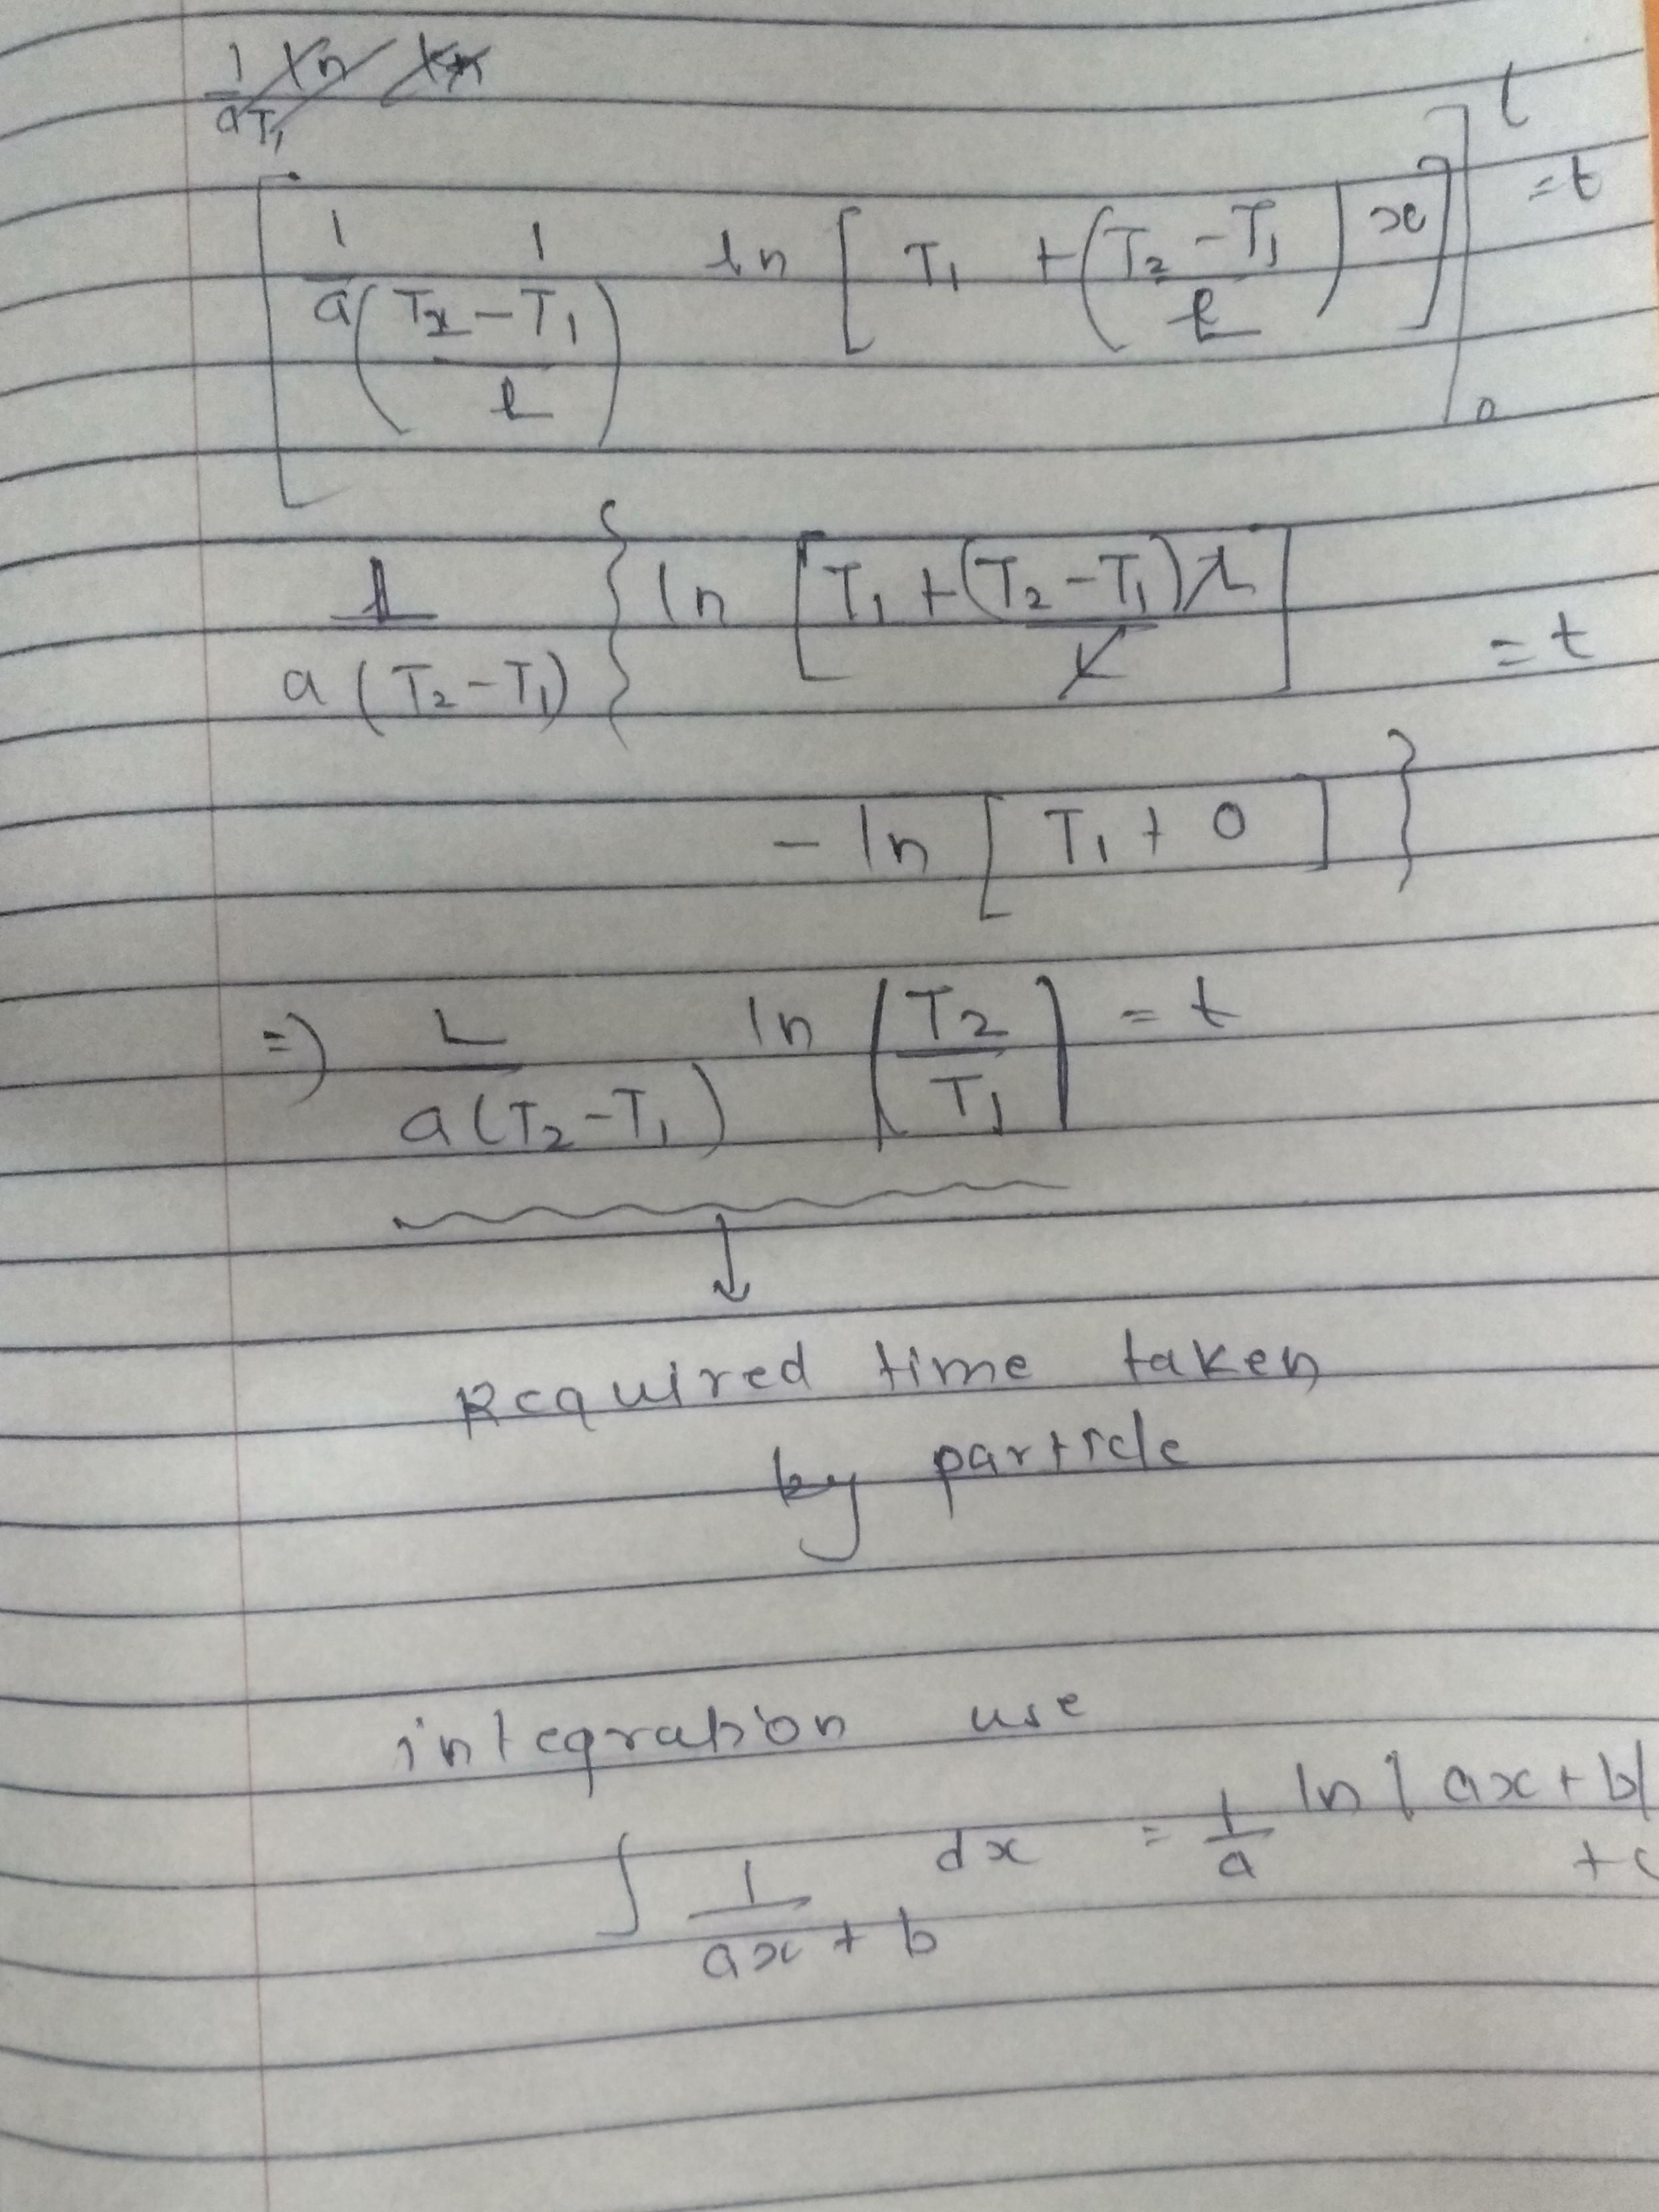 [ 1/a 1/((T₂ - T₁)/l) ln [ T₁ + ((T₂ - T₁)/l) x ] ]₀ˡ = t
l/(a(T₂ - T₁)) { ln [ T₁ + (T₂ - T₁)l/l ] = t
- ln [ T₁ + 0 ] }
=) L/(a(T₂ - T₁)) ln (T₂/T₁) = t
↓
Required time taken
by particle
integration use
∫ 1/(ax + b) dx = 1/a ln |ax + b|
+ c